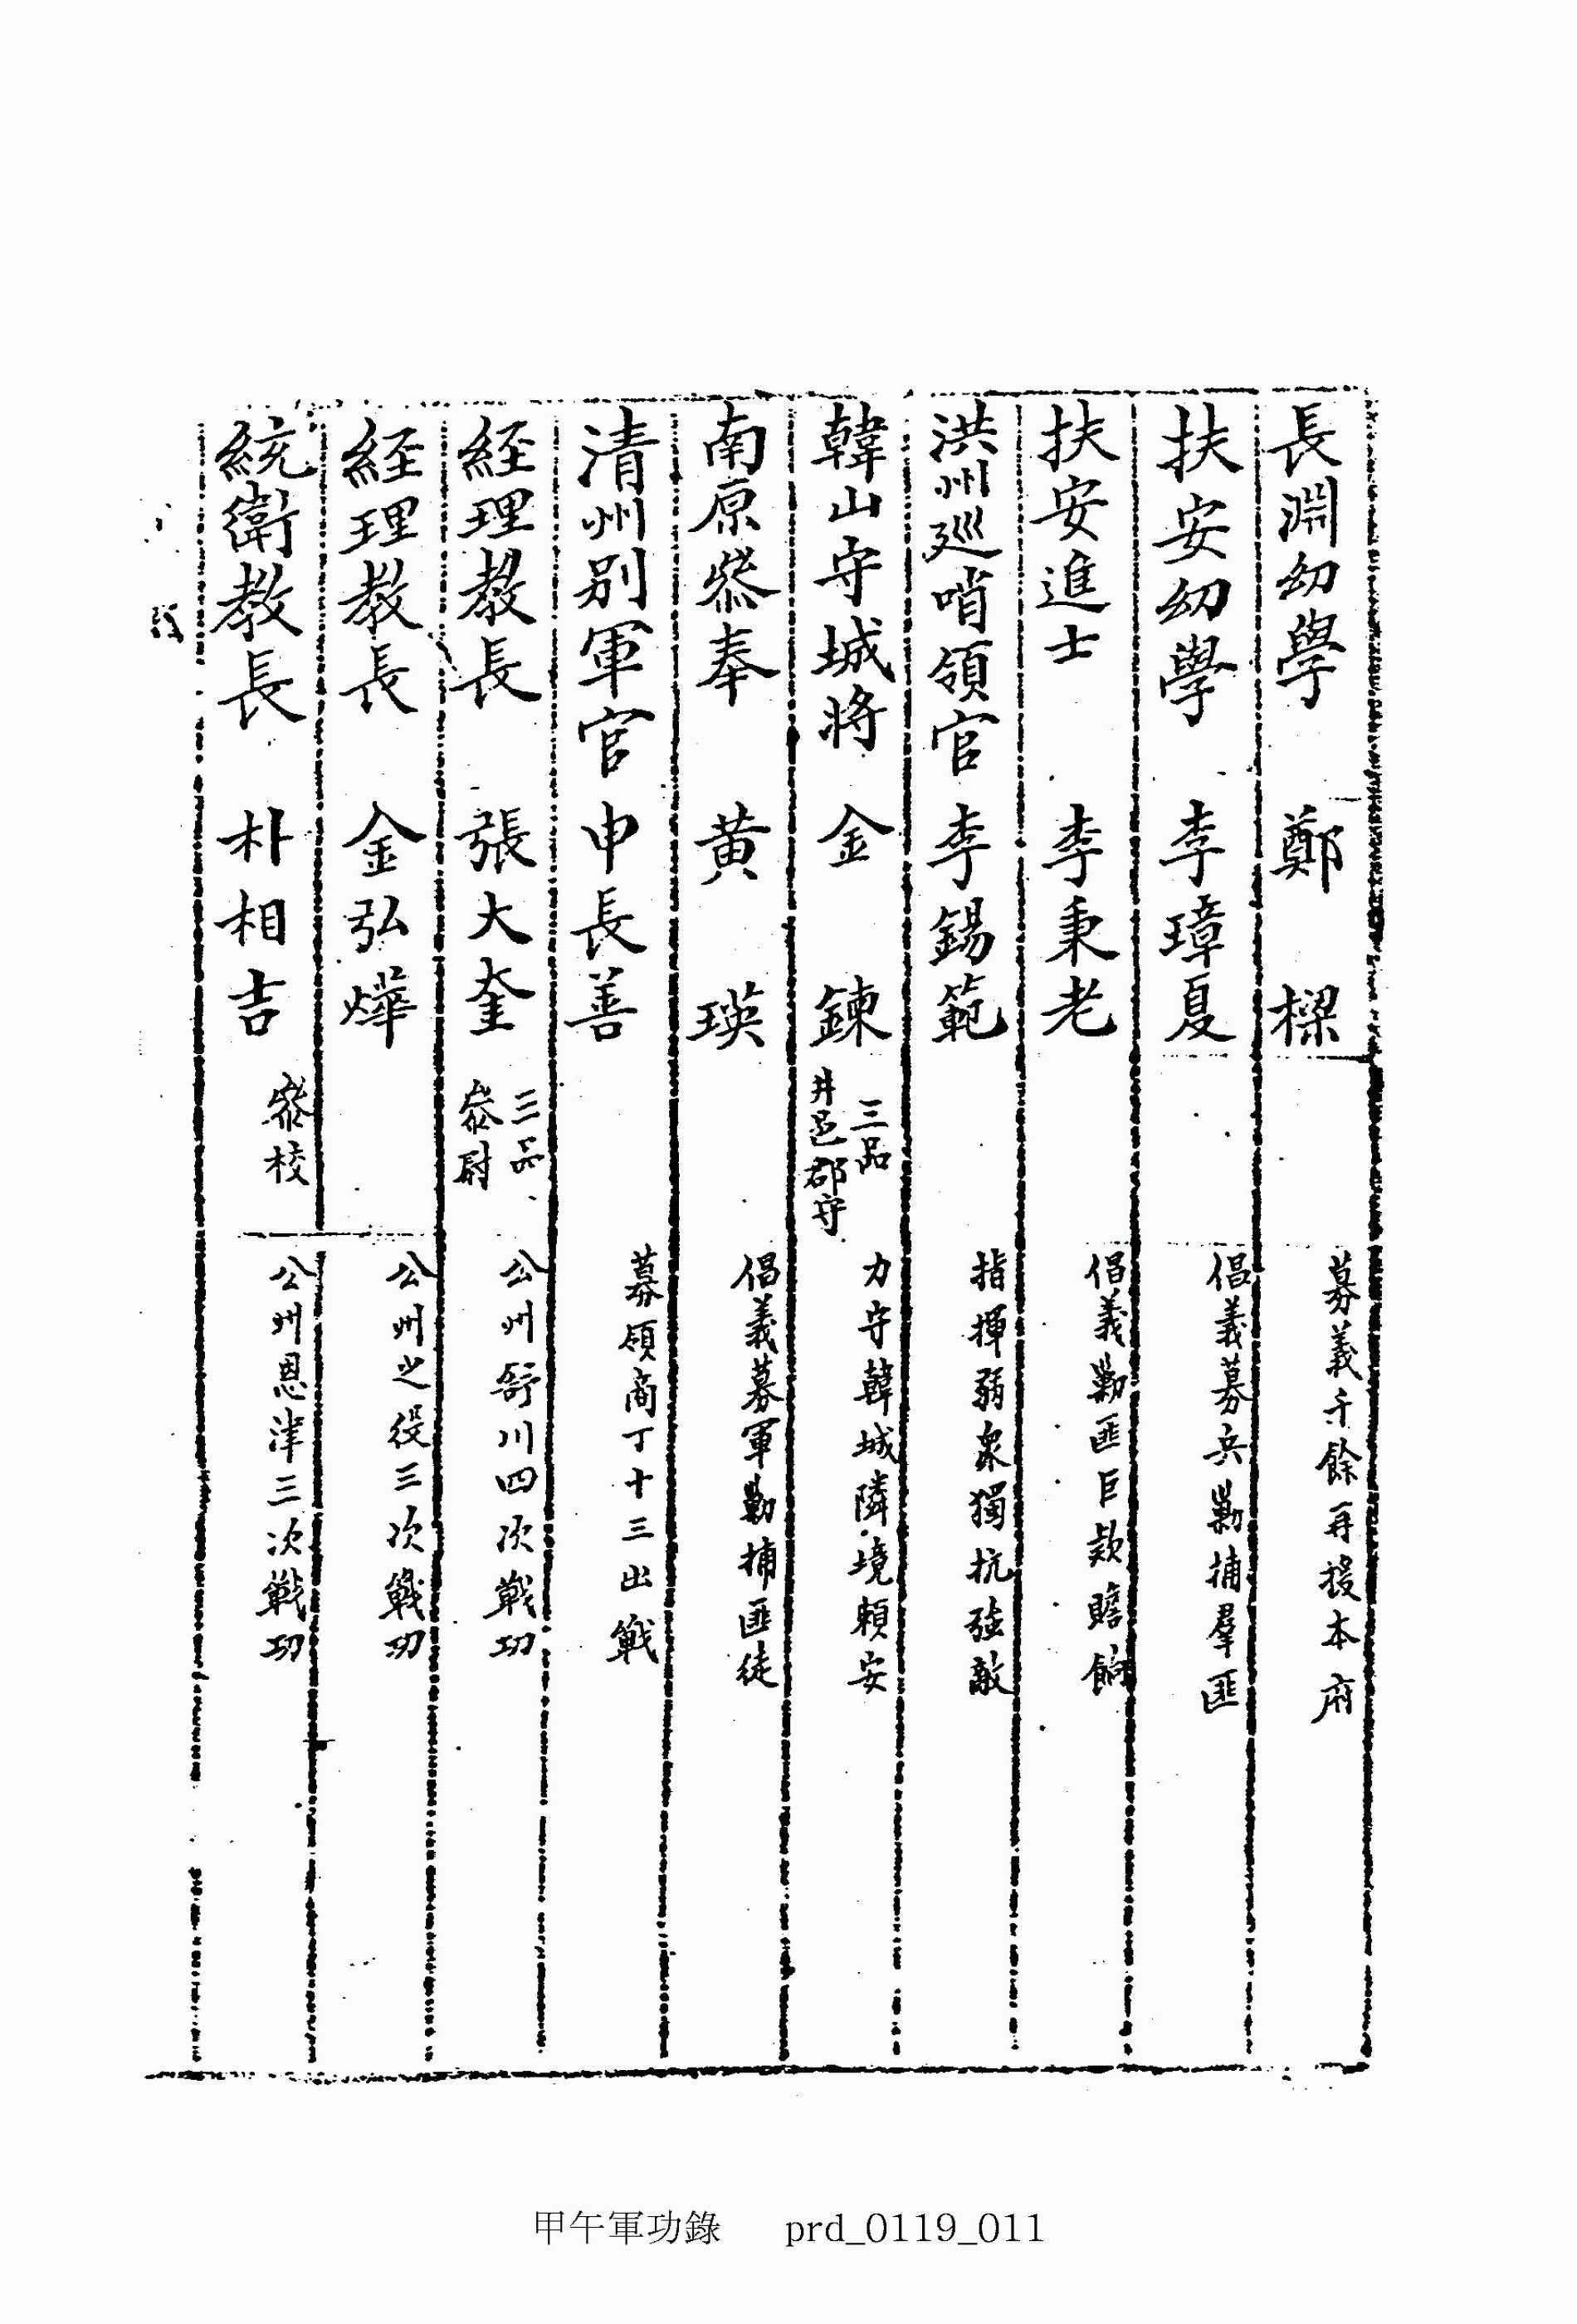 長淵幼學 鄭樑 募義千餘再援本府
扶安幼學 李璋夏 倡義募兵勦捕羣匪
扶安進士 李秉老 倡義勦匪巨款贍餉
洪州巡哨領官 李錫範 指揮弱衆獨抗強敵
韓山守城將 金鍊 三品 井邑郡守 力守韓城隣境頼安
南原叅奉 黃瑛 倡義募軍勦捕匪徒
清州別軍官 申長善 募領商丁十三出戰
経理教長 張大奎 三品 叅尉 公州舒川四次戰功
経理教長 金弘燁 公州之役三次戰功
統衛教長 朴相吉 叅校 公州恩津三次戰功
甲午軍功錄 prd_0119_011